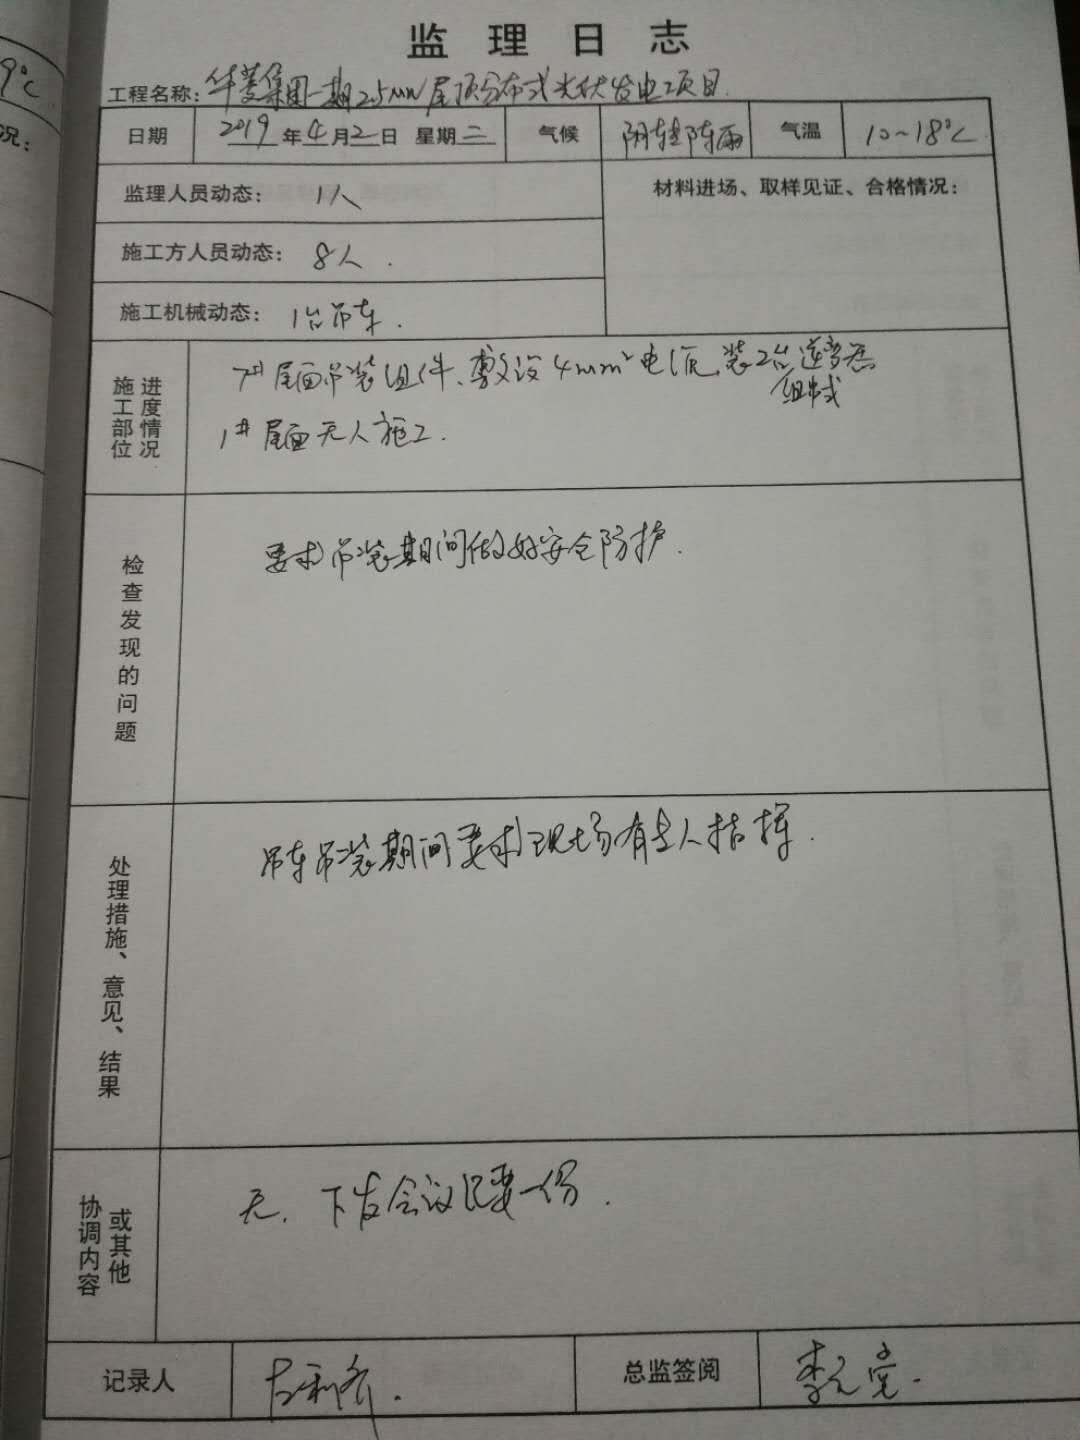 9℃
况：
监理日志
工程名称：华菱集团一期2.5MW屋顶分布式光伏发电项目
日期 2019年4月2日 星期二 气候 阴转阵雨 气温 10~18℃
监理人员动态： 1人
材料进场、取样见证、合格情况：
施工方人员动态： 8人.
施工机械动态： 1台吊车.
施工部位
进度情况
7#屋面吊装组件、敷设4mm²电缆,装2台逆变器
组串式
1#屋面无人施工.
检查发现的问题
要求吊装期间做好安全防护.
处理措施、意见、结果
吊车吊装期间要求现场有专人指挥.
协调内容
或其他
无. 下发会议纪要一份.
记录人
总监签阅